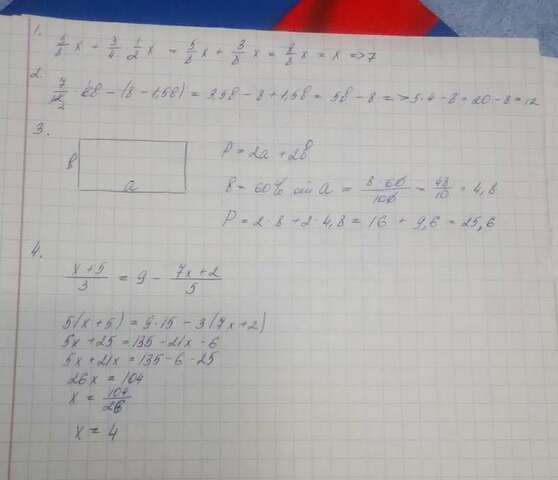 1.
5/8 x + 3/4 · 1/2 x = 5/8 x + 3/8 x = 8/8 x = x => 7
2.
7/12 · 6b - (8 - 1,5b) = 3,5b - 8 + 1,5b = 5b - 8 => 5·4 - 8 = 20 - 8 = 12
3.
P = 2a + 2b
b
a
8 = 60% din a = 8·60/100 = 48/10 = 4,8
P = 2·8 + 2·4,8 = 16 + 9,6 = 25,6
4.
x+5/3 = 9 - 7x+2/5
5(x+5) = 9·15 - 3(7x+2)
5x + 25 = 135 - 21x - 6
5x + 21x = 135 - 6 - 25
26x = 104
x = 104/26
x = 4